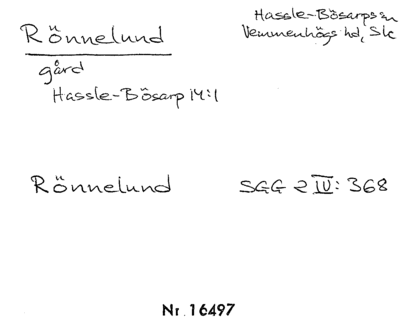 Rönnelund
Hassle-Bösarps sn
Vemmenhögs hd, Sk
gård
Hassle-Bösarp 14:1
Rönnelund SGG 2 IV: 368
Nr 16497